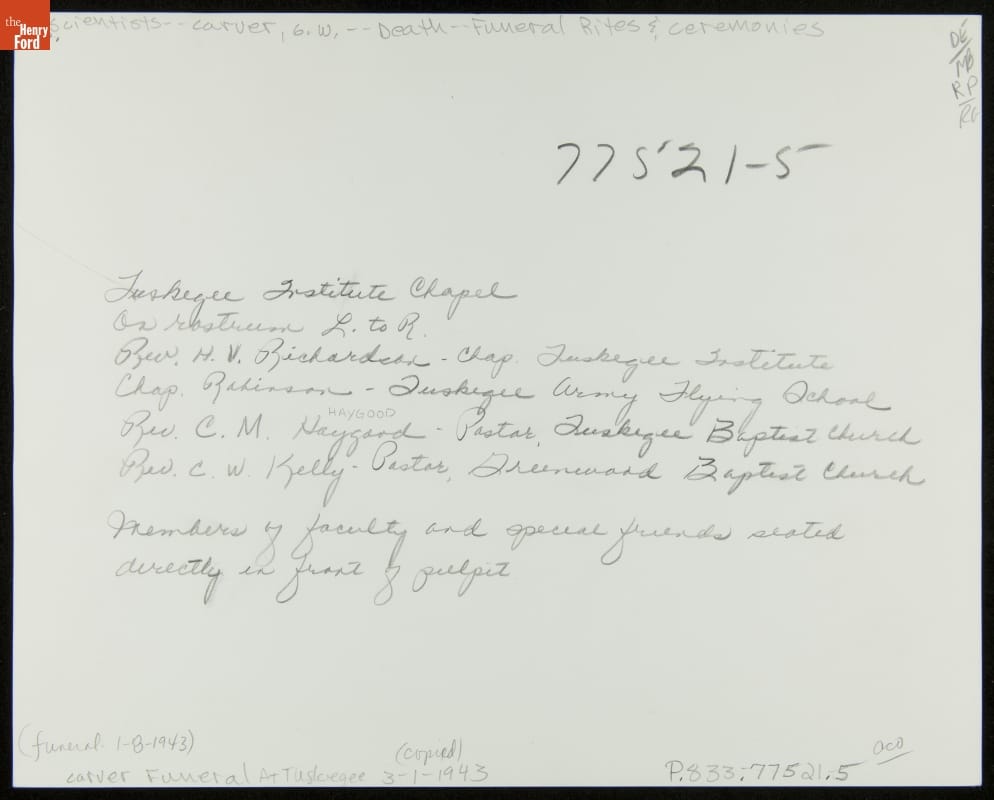 the
Henry
Ford
Scientists--Carver, G.W.--Death--Funeral Rites & ceremonies
DE/
MB
RP/
RG
77521-5
Tuskegee Institute Chapel
On rostrum L. to R.
Rev. H. V. Richardson - Chap. Tuskegee Institute
Chap. Robinson - Tuskegee Army Flying School
HAYGOOD
Rev. C. M. Haygood - Pastor, Tuskegee Baptist Church
Rev. C. W. Kelly - Pastor, Greenwood Baptist Church
Members of faculty and special friends seated
directly in front of pulpit
(funeral 1-8-1943)
(copied)
aco
Carver Funeral At Tuskegee 3-1-1943
P.833.77521.5